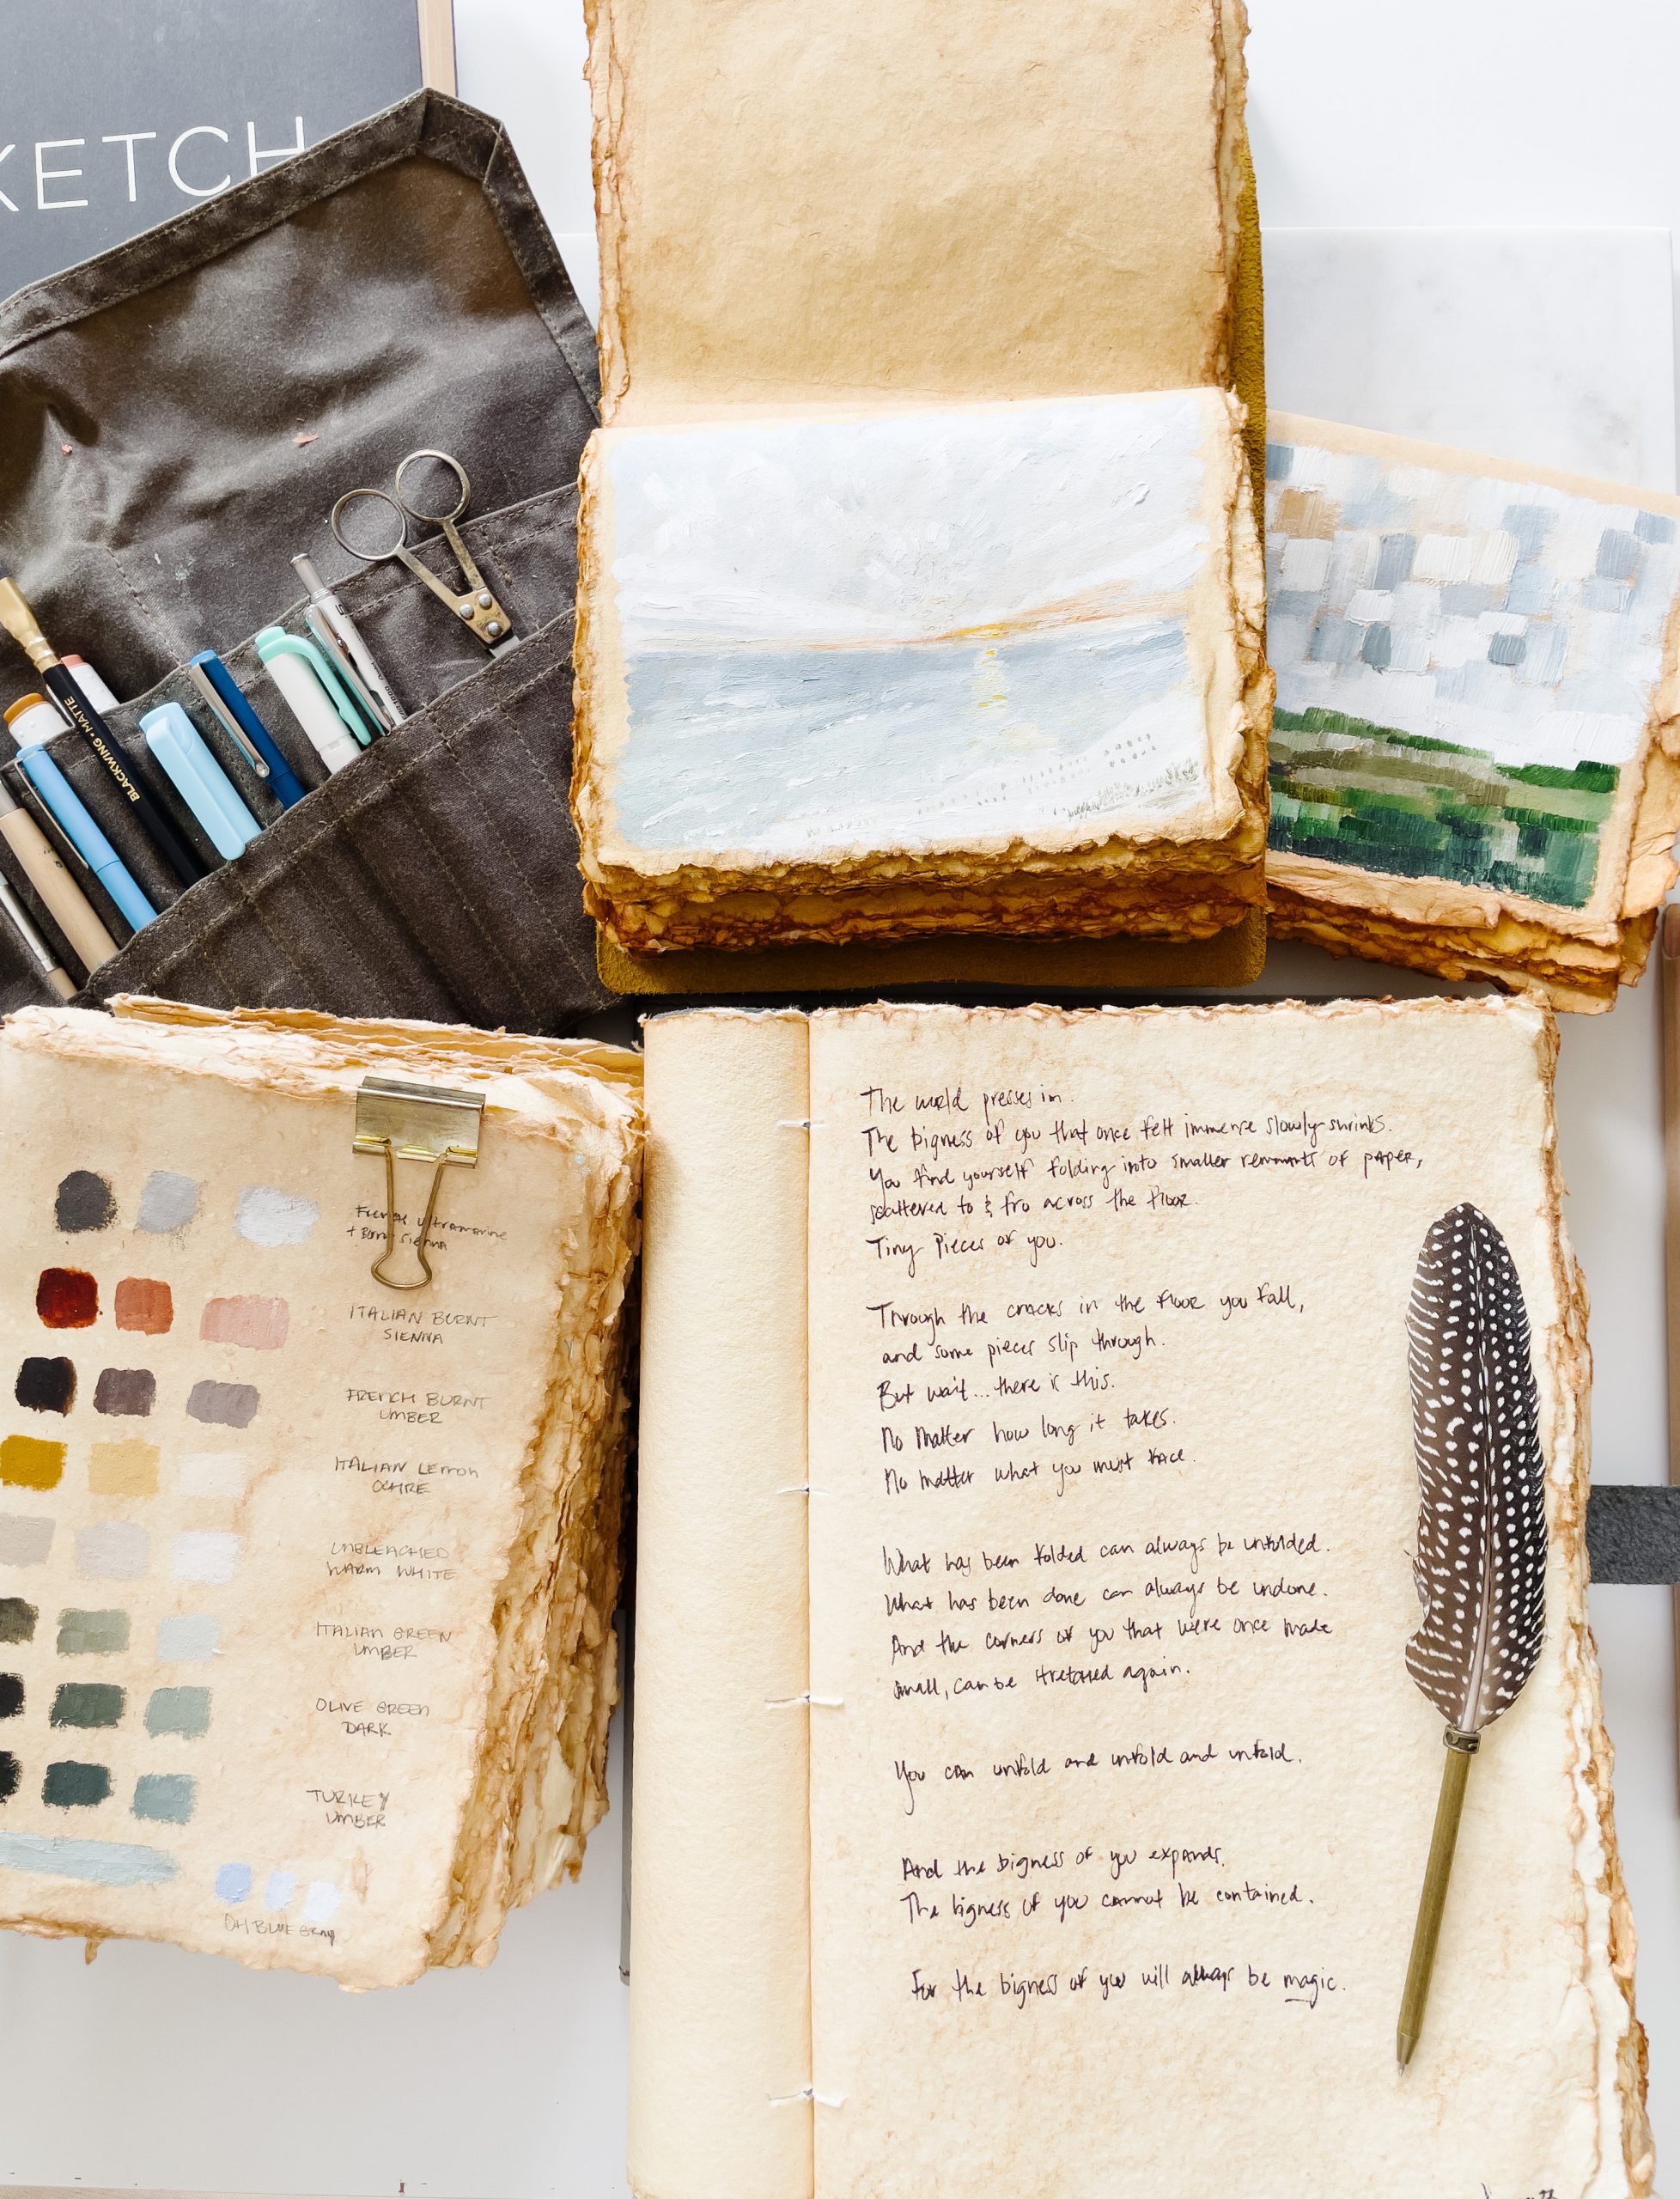 KETCH
BLACKWING MATTE
French Ultramarine
+ Burnt Sienna
ITALIAN BURNT
SIENNA
FRENCH BURNT
UMBER
ITALIAN LEMON
OCHRE
UNBLEACHED
WARM WHITE
ITALIAN GREEN
UMBER
OLIVE GREEN
DARK
TURKEY
UMBER
BLUE GRAY
The world presses in.
The bigness of you that once felt immense slowly shrinks.
You find yourself folding into smaller remnants of paper,
scattered to & fro across the floor.
Tiny pieces of you.
Through the cracks in the floor you fall,
and some pieces slip through.
But wait... there is this.
No matter how long it takes.
No matter what you must face.
What has been folded can always be unfolded.
What has been done can always be undone.
And the corners of you that were once made
small, can be stretched again.
You can unfold and unfold and unfold.
And the bigness of you expands.
The bigness of you cannot be contained.
For the bigness of you will always be magic.